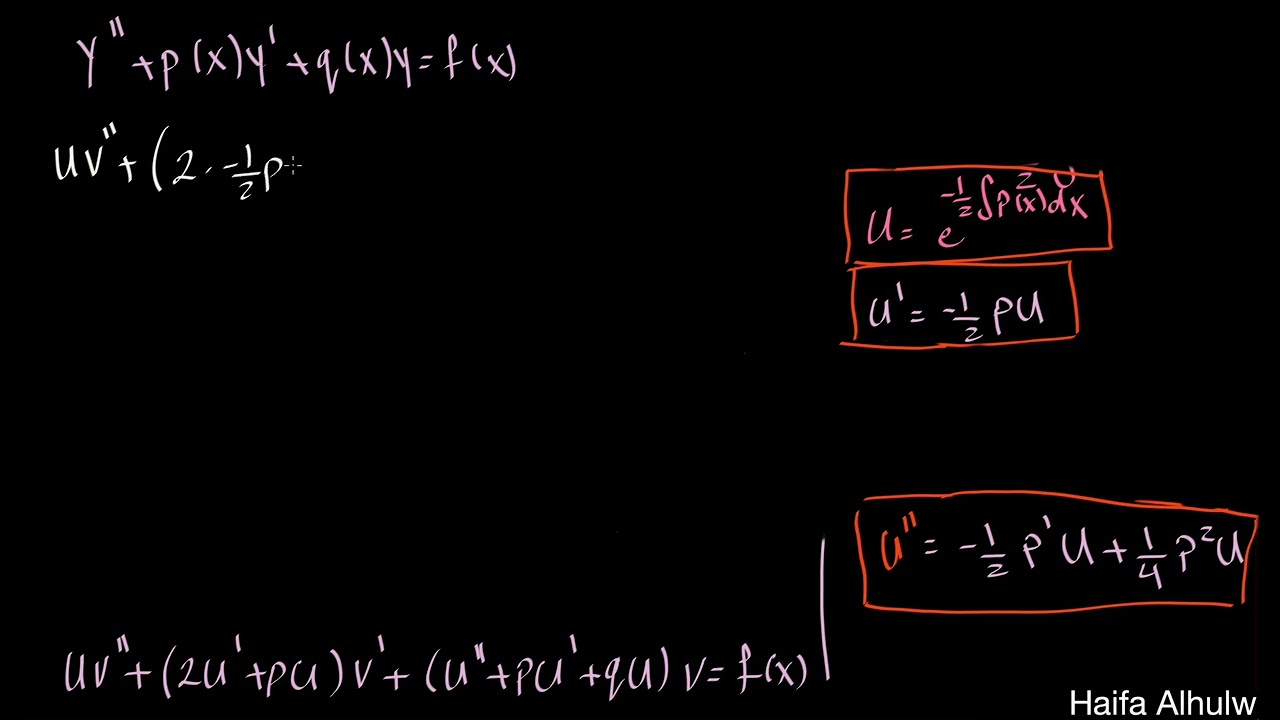 y'' + p(x)y' + q(x)y = f(x)
uv'' + (2 · -1/2 p
u = e^{-1/2 ∫p(x)dx}
u' = -1/2 pu
u'' = -1/2 p'u + 1/4 p²u
uv'' + (2u' + pu)v' + (u'' + pu' + qu) v = f(x)
Haifa Alhulw